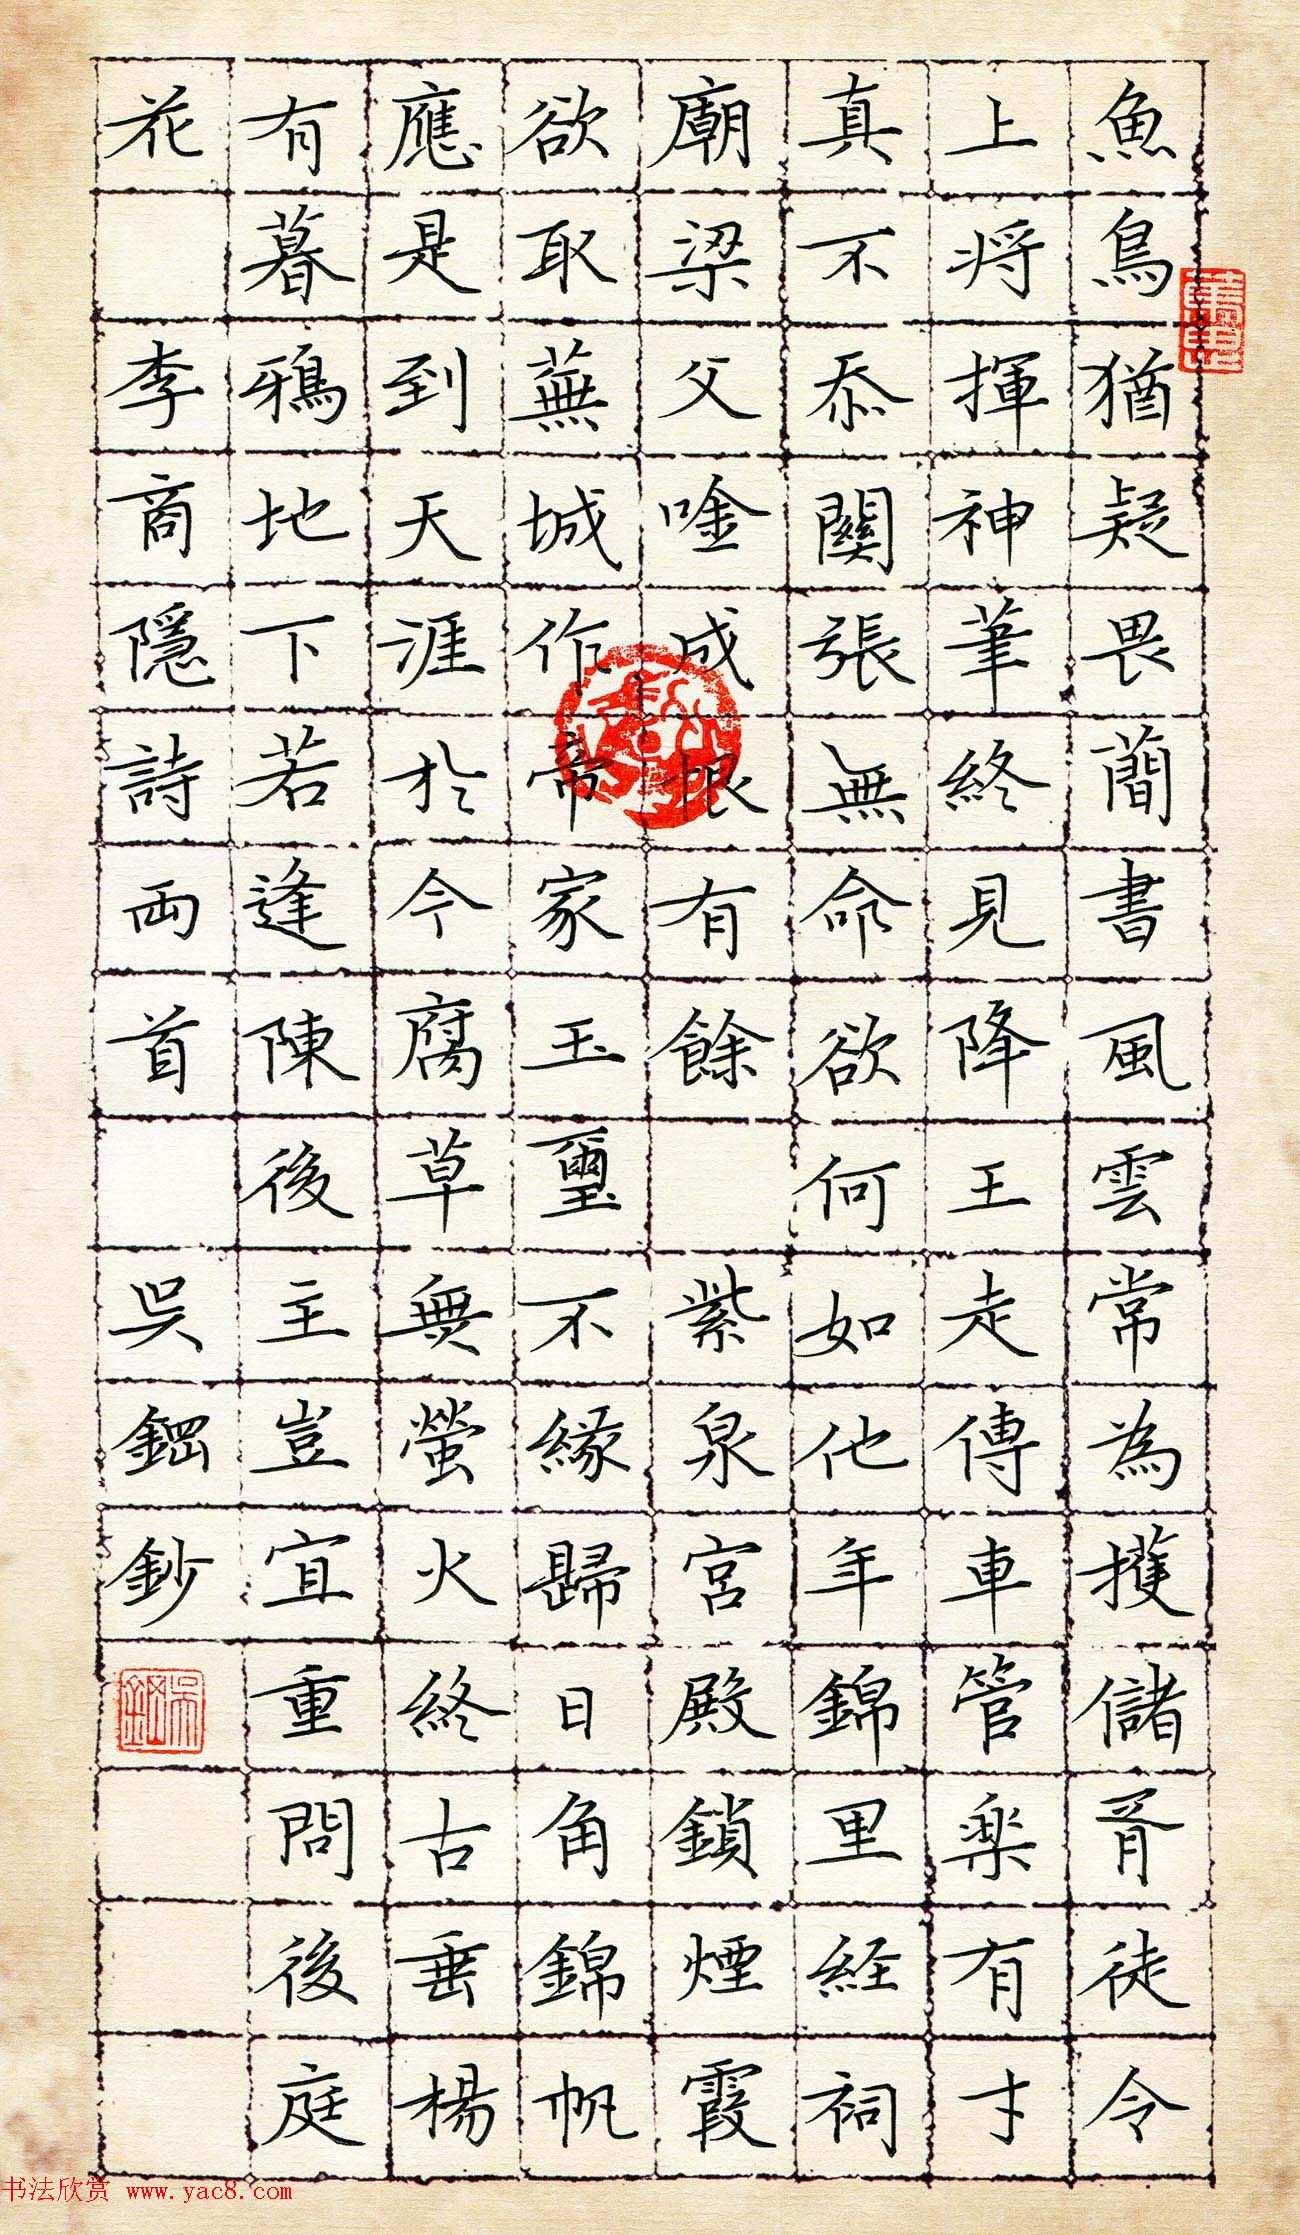 魚鳥猶疑畏蕳書風雲常為擭儲胥徒令
上将揮神筆終見降王走傳車管楽有才
真不忝關張無命欲何如他年錦里経祠
廟梁父唫成恨有餘　紫泉宮殿鎖煙霞
欲取蕪城作帝家玉璽不緣歸日角錦帆
應是到天涯於今腐草無螢火終古垂楊
有暮鴉地下若逢陳後主豈宜重問後庭
花　李商隱詩兩首　吳鋼鈔
吳鋼
书法欣赏 www.yac8.com